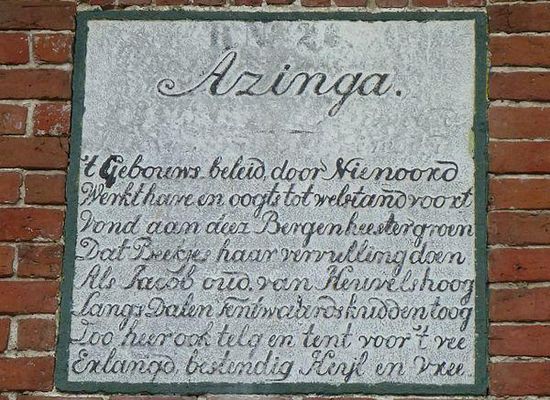 Azinga.
't Gebouws beleid door Nienoord
Werkt have en oogts tot welstand voort
Vond aan deez Bergen heestergroen
Dat Beekjes haar vervulling doen
Als Jacob oud van Heuvels hoog
Langs Dalen Fent waterds kudden toog
Zoo heer ook telg en tent voor 't vee
Erlangd bestendig Heyl en Vree